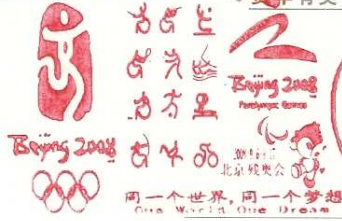 Beijing 2008
Beijing 2008
Paralympic Games
北京残奥会
同一个世界，同一个梦想
One World One Dream